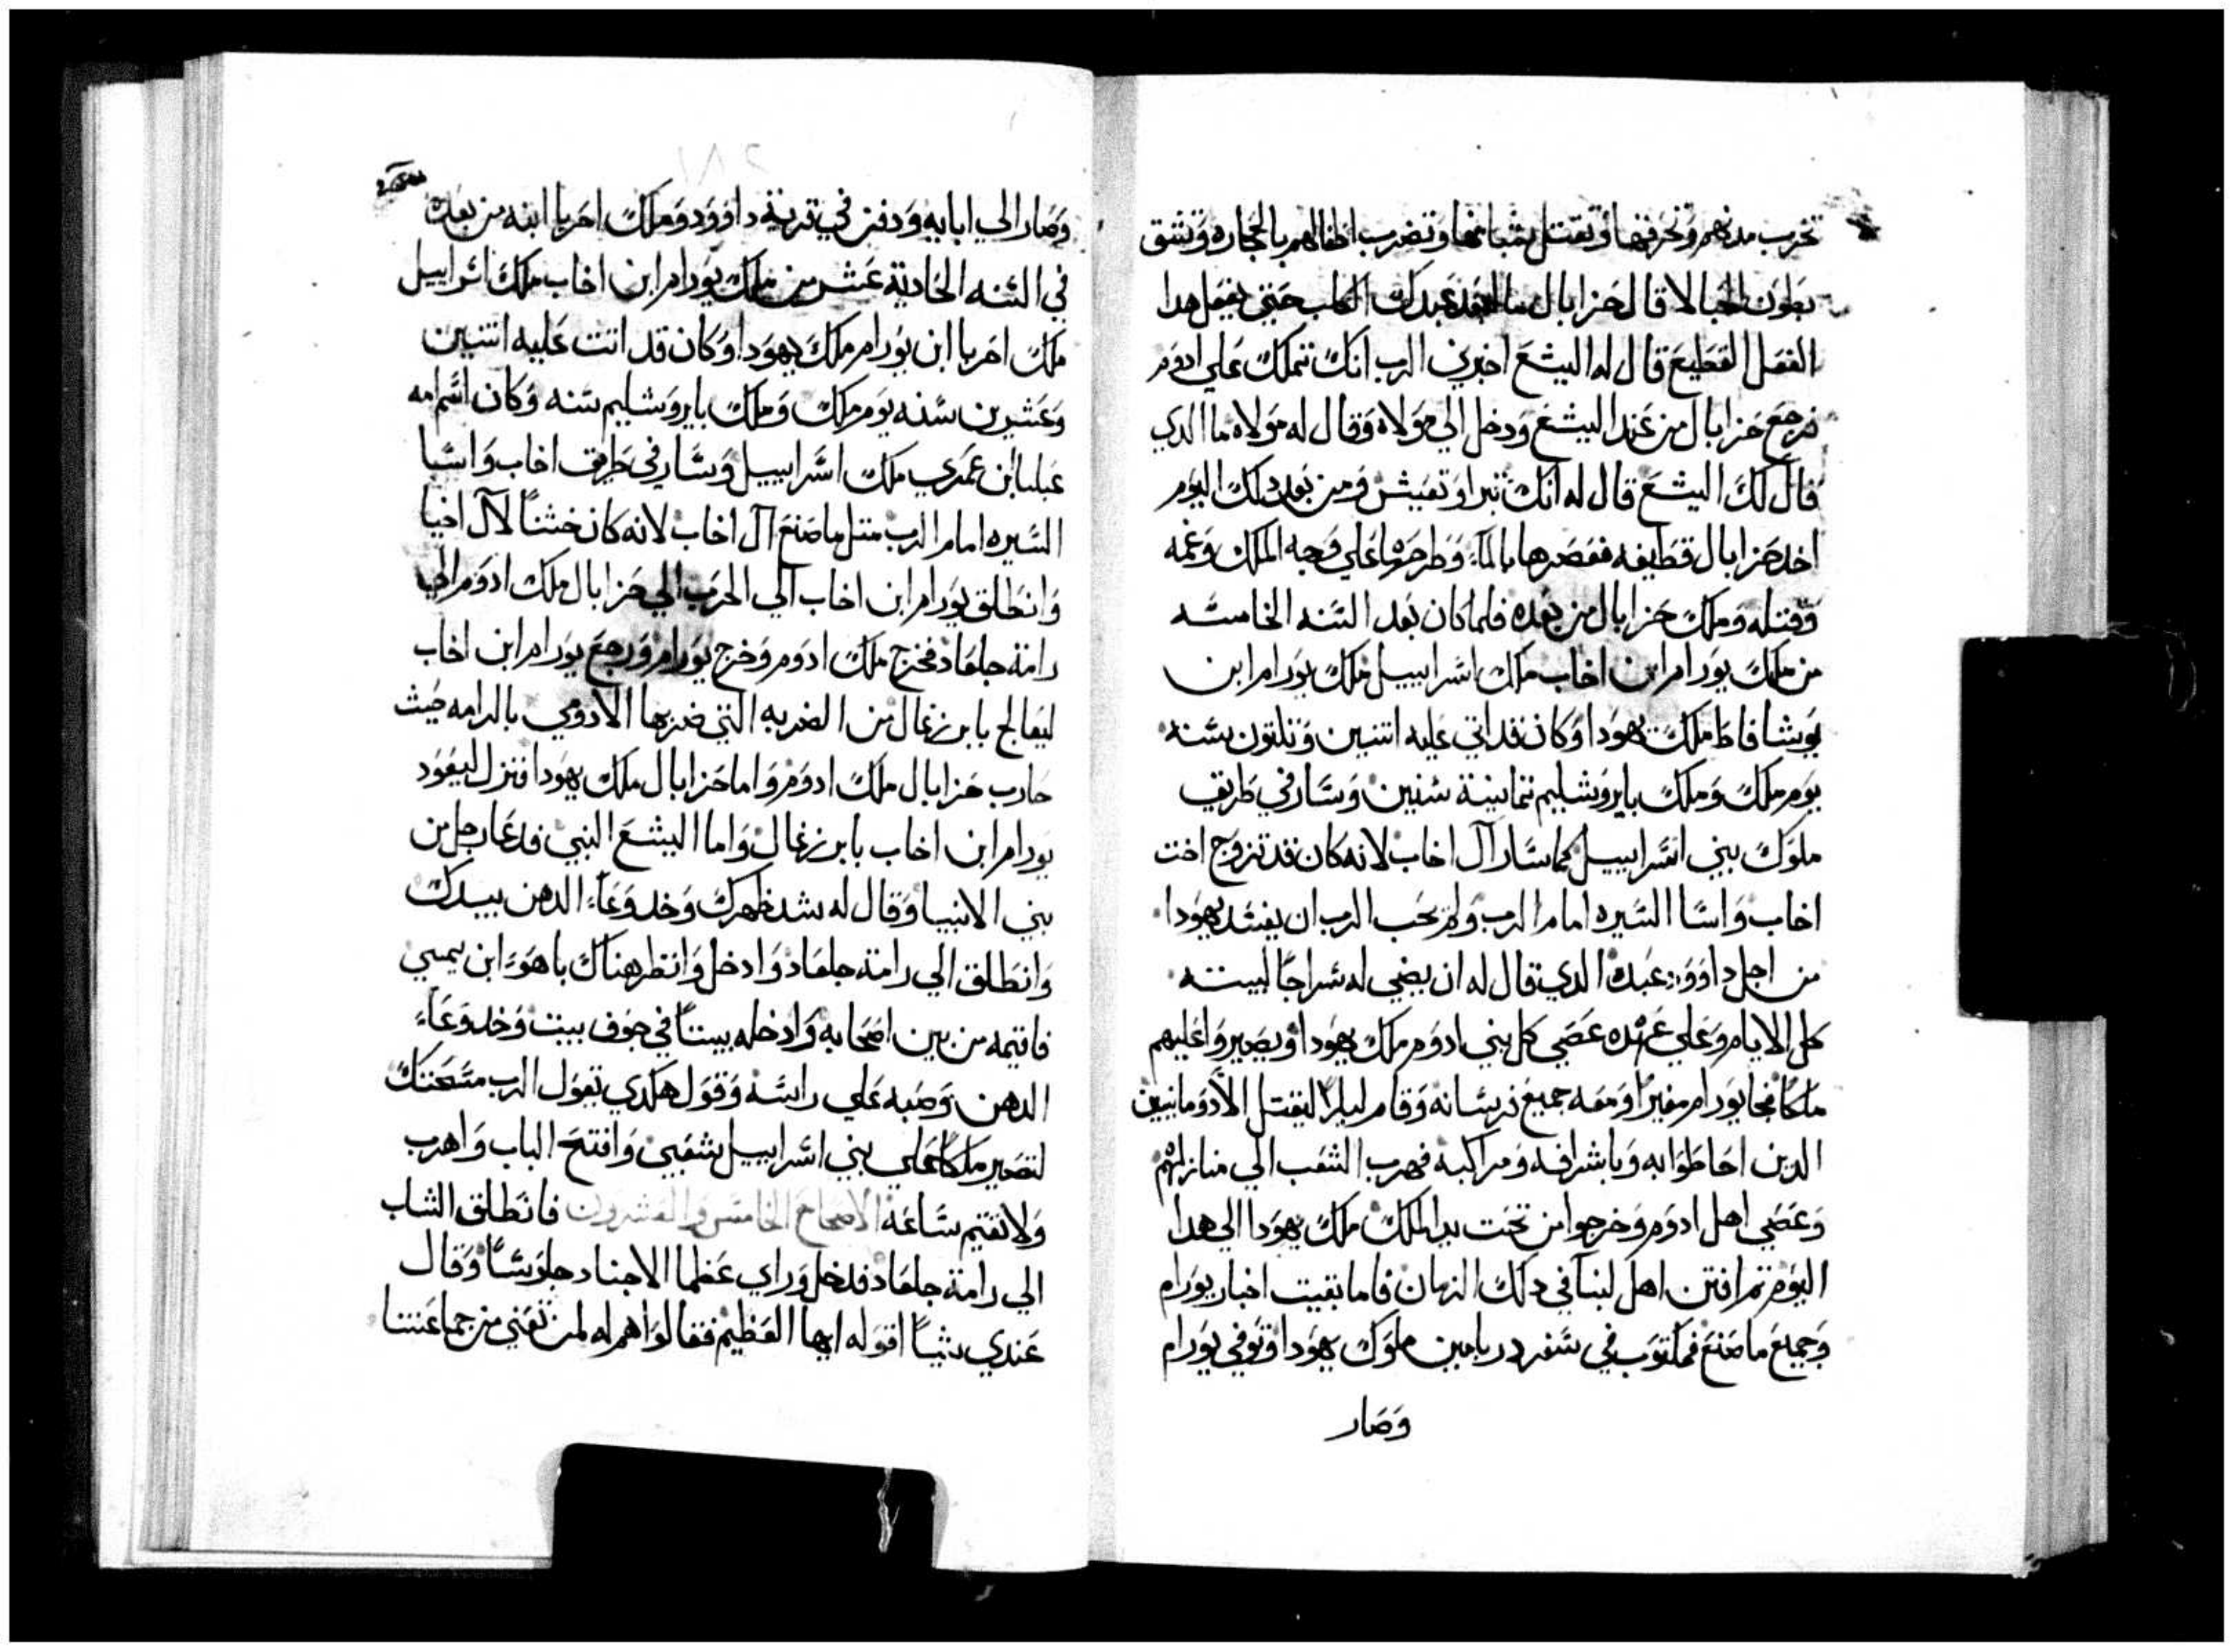 تخرب مدنهم وتحرقها وتقتل شبانها وتضرب اطفالهم بالحجاره وتشق
بطون الحبالا قال حزابال ما العبد عبدك الكلب حتي يفعل هدا
الفعل الفظيع قال له اليشع اخبرني الرب انك تتملك علي ادوم
فرجع حزابال من عند اليشع ودخل الي مولاه وقال له مولاه ما الدي
قال لك اليشع قال له انك تبرا وتعيش ومن بعد دلك اليوم
اخد حزابال قطيفه فغمرها بالماء وطرحها علي وجه الملك وغمه
وقتله وملك حزابال من بعده فلما كان بعد السنه الخامسه
من ملك يورام ابن اخاب ملك اسراييل ملك يورام ابن
يوشافاط ملك يهودا وكان قد اتي عليه اتنين وتلتون سنه
يوم ملك وملك بايروشليم تمانية سنين وسار في طريق
ملوك بني اسراييل كما سار آل اخاب لانه كان قد تزوج اخت
اخاب واسا السيره امام الرب ولم يحب الرب ان يفسد يهودا
من اجل داوود عبده الدي قال له ان يضي له سراجا لبيته
كل الايام وعلي عهده عصي كل بني ادوم ملك يهودا ويصيروا عليهم
ملكا فجا يورام مغيرا ومعه جميع فرسانه وقام ليلا ليقتل الادومانيين
الدين احاطوا به وباشرافه ومراكبه فهرب الشعب الي منازلهم
وعصي اهل ادوم وخرجوا من تحت يد الملك ملك يهودا الي هدا
اليوم تم افتن اهل لبنا في دلك الزمان فاما بقيت اخبار يورام
وجميع ما صنع فمكتوب في سفر دبريامين ملوك يهودا وتوفي يورام
وصار
وصار الي ابايه ودفن في قرية داوود وملك احزيا ابنه من بعده
في السنه الحادية عشر من ملك يورام ابن اخاب ملك اسراييل
ملك احزيا ابن يورام ملك يهودا وكان قد اتت عليه اتنين
وعشرين سنه يوم ملك وملك بايروشليم سنه وكان اسم امه
عتليا ابن عمري ملك اسراييل وسار في طريق اخاب واسا
السيره امام الرب متل ما صنع آل اخاب لانه كان ختنا لآل اخيا
وانطلق يورام ابن اخاب الي الحرب الي حزابال ملك ادوم الي
رامة جلعاد فخرج ملك ادوم وخرج يورام ورجع يورام ابن اخاب
ليعالج بايرزغال من الضربه التي ضربها الادومي بالرامه حيث
حارب حزابال ملك ادوم واما حزابال ملك يهودا فنزل ليعود
يورام ابن اخاب بايرزغال واما اليشع النبي فدعا رجل من
بني الانبيا وقال له شد ظهرك وخد وعاء الدهن بيدك
وانطلق الي رامة جلعاد وادخل وانظر هناك ياهو ابن يمسي
فاتيمه من بين اصحابه وادخله بيتا في جوف بيت وخد وعاء
الدهن وصبه علي راسه وقول هكدي تقول الرب مسحتك
لتصير ملكا علي بني اسراييل شعبي وافتح الباب واهرب
ولا تقتم ساعه الاصحاح الخامس والعشرون فانطلق الشاب
الي رامة جلعاد فدخل وراي عظما الاجناد جلوسا وقال
عندي شيا اقوله ايها العظيم فقالوا هم له لمن تعني من جماعتنا